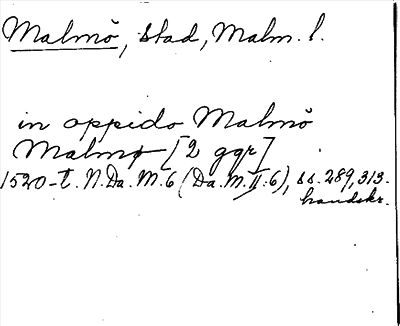 Malmö, stad, Malm. l.
in oppido Malmö
Malmø [2 ggr]
1520-t. N.Da.M.6 (Da.M.II:6), ss. 289, 313.
handskr.